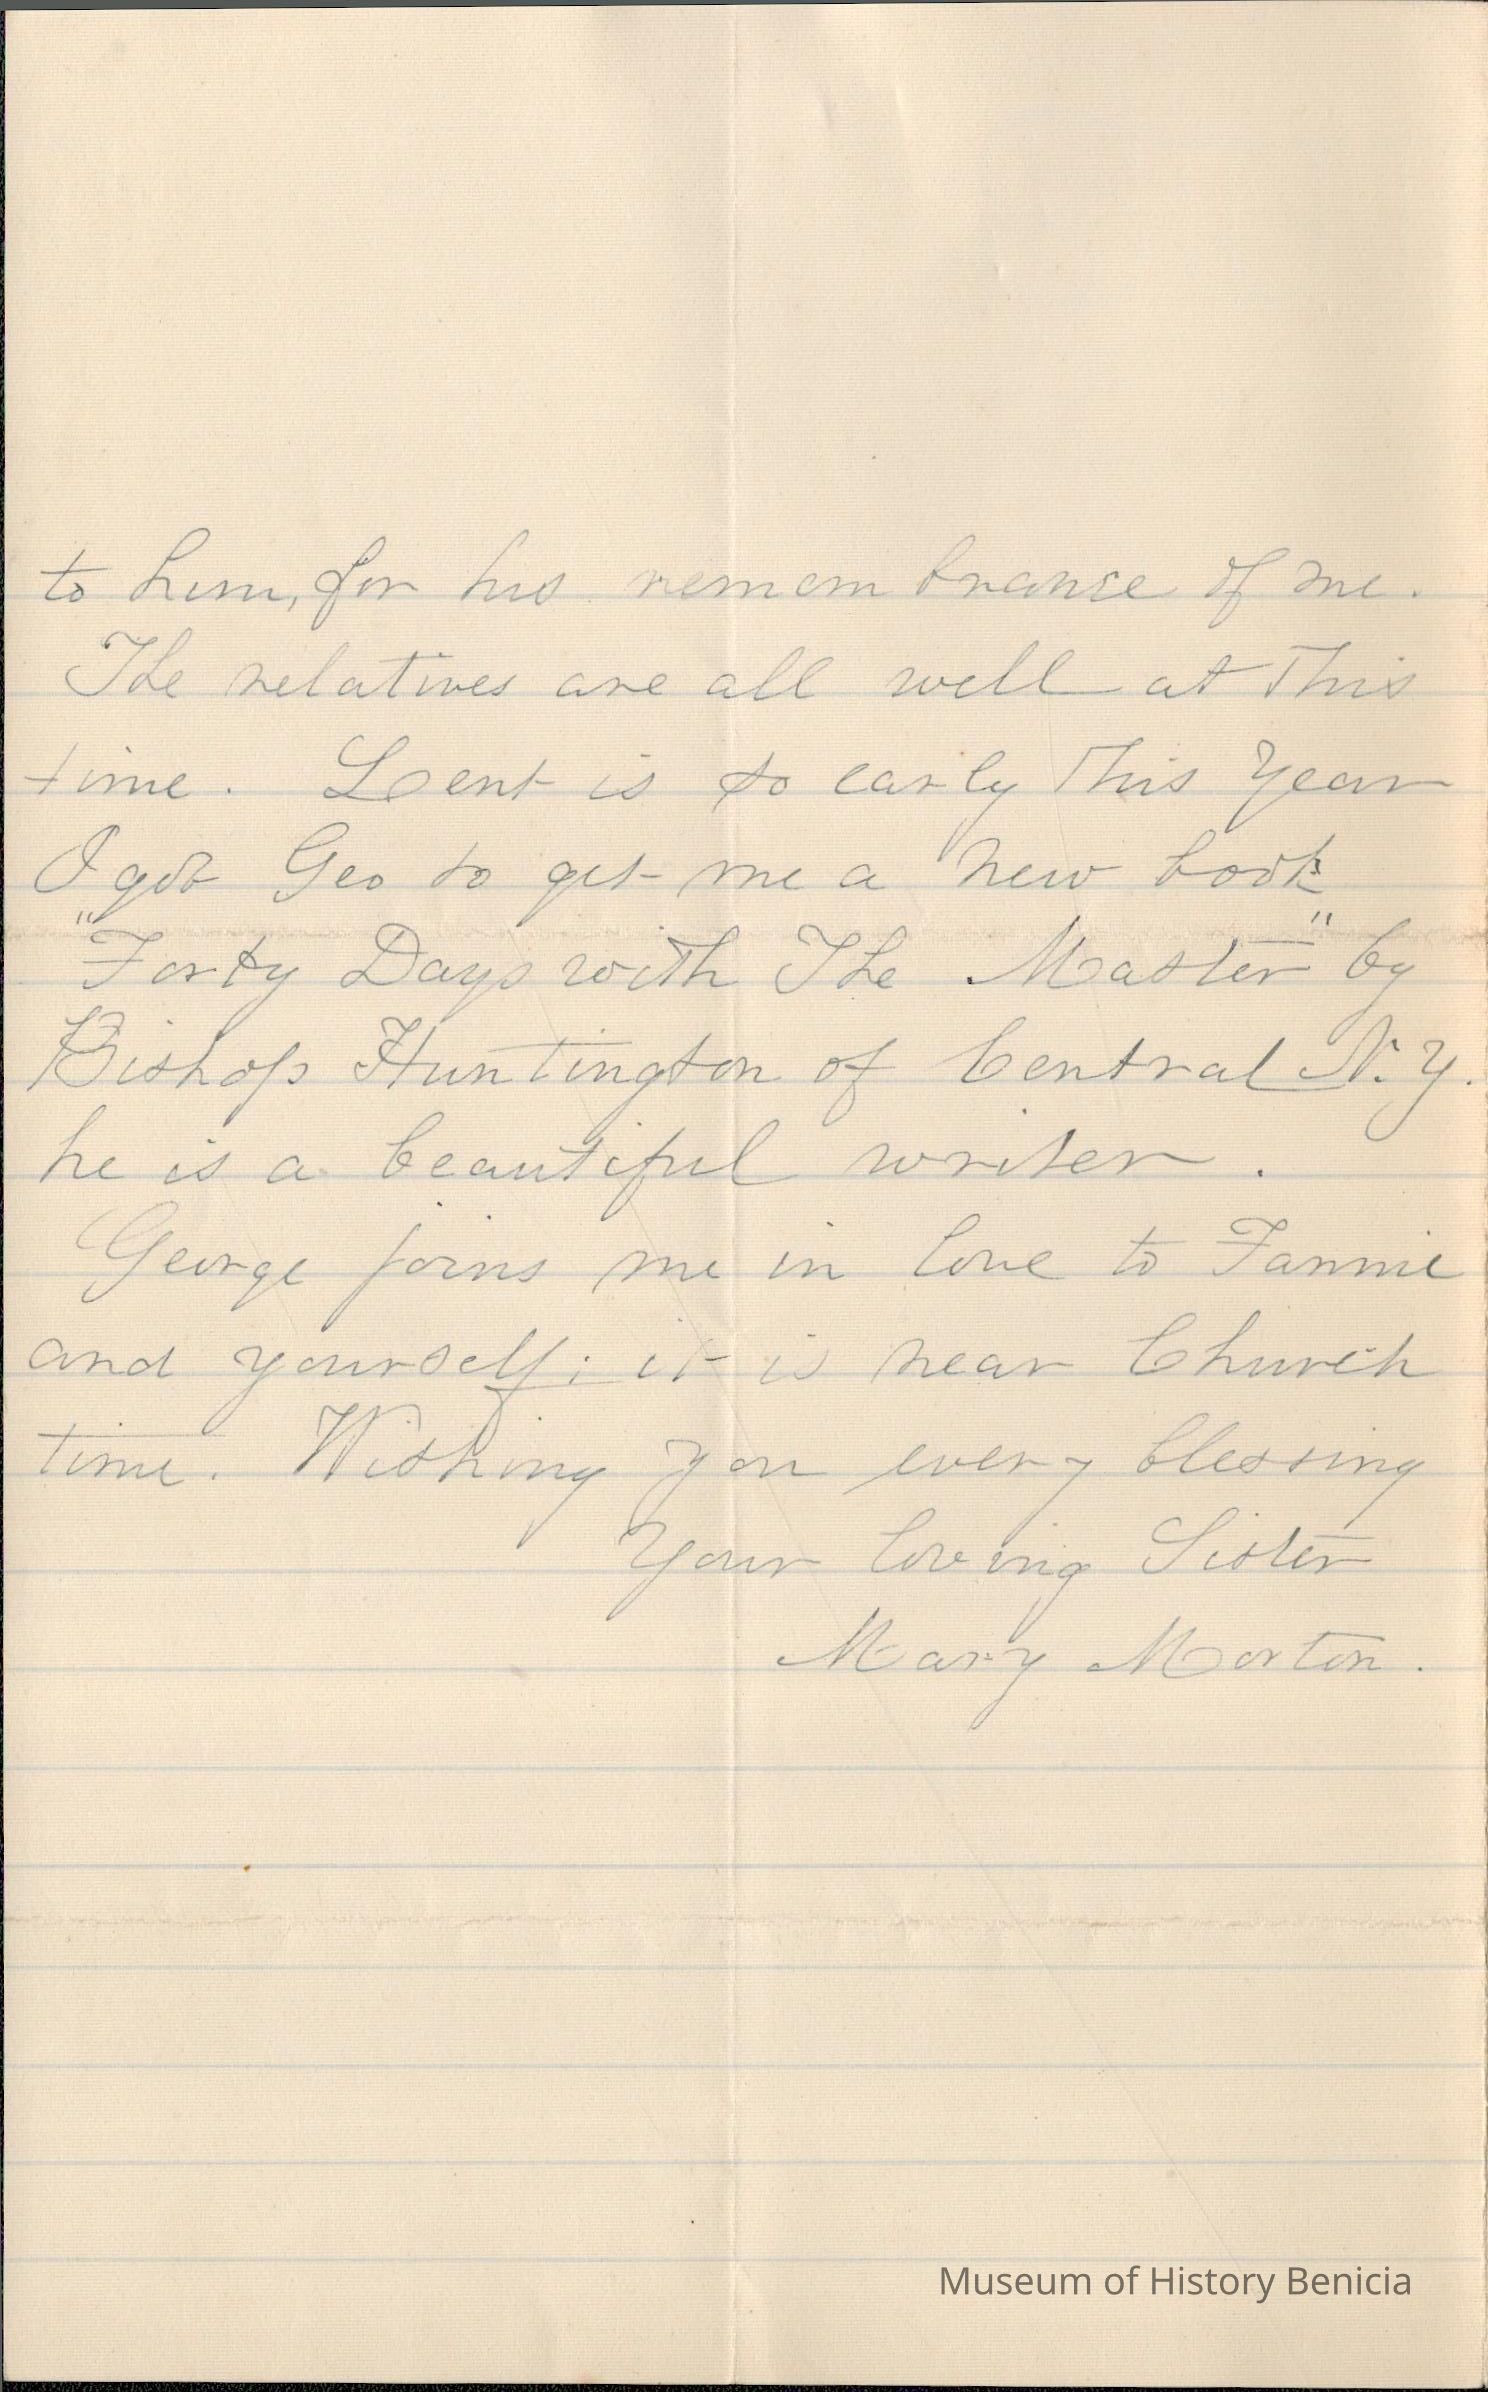 to him, for his remembrance of me.
The relatives are all well at This
time. Lent is so early This Year
I got Geo to get me a new book
"Forty Days with The Master" by
Bishop Huntington of Central N.Y.
he is a beautiful writer.
George joins me in love to Fannie
and yourself; it is near Church
time. Wishing you every blessing
Your loving Sister
Mary Morton.
Museum of History Benicia